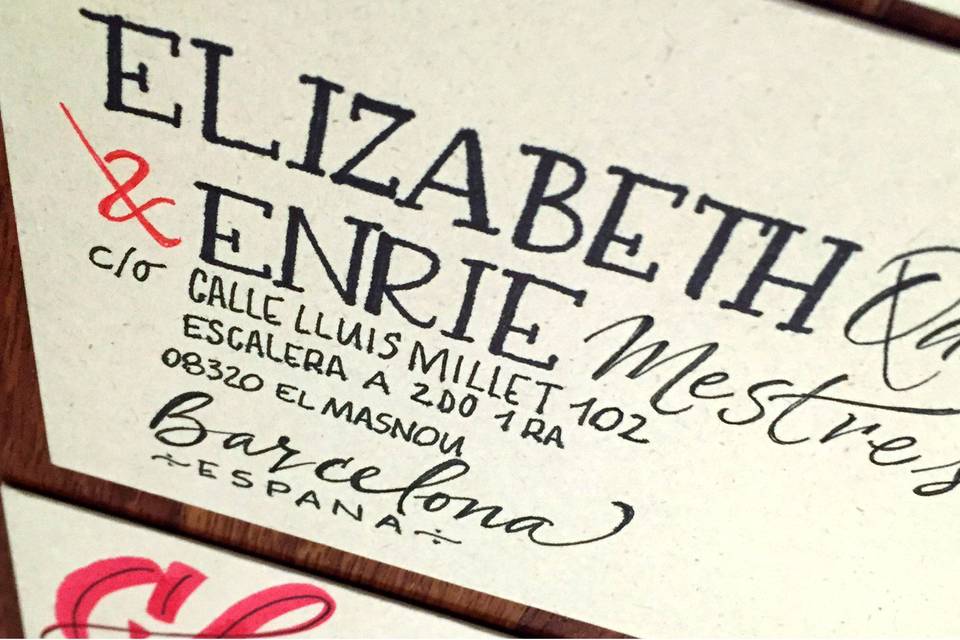 ELIZABETH
& ENRIE Mestres
c/o CALLE LLUIS MILLET 102
ESCALERA A 2DO 1RA
08320 EL MASNOU
Barcelona
÷ESPANA÷